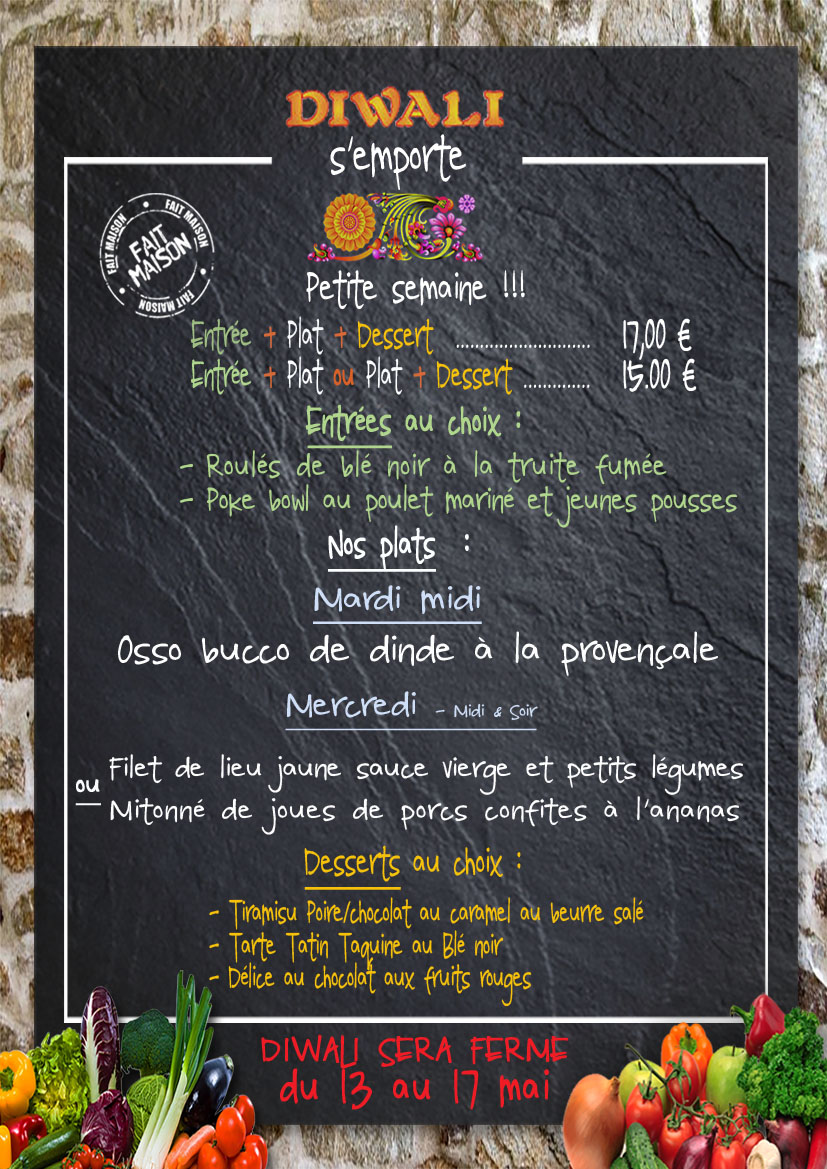 DIWALI
s'emporte
FAIT MAISON
FAIT MAISON
FAIT MAISON
FAIT
MAISON
Petite semaine !!!
Entrée + Plat + Dessert ............................ 17,00 €
Entrée + Plat ou Plat + Dessert .............. 15.00 €
Entrées au choix :
- Roulés de blé noir à la truite fumée
- Poke bowl au poulet mariné et jeunes pousses
Nos plats :
Mardi midi
Osso bucco de dinde à la provençale
Mercredi - Midi & Soir
Filet de lieu jaune sauce vierge et petits légumes
ou
Mitonné de joues de porcs confites à l'ananas
Desserts au choix :
- Tiramisu Poire/chocolat au caramel au beurre salé
- Tarte Tatin Taquine au Blé noir
- Délice au chocolat aux fruits rouges
DIWALI SERA FERME
du 13 au 17 mai